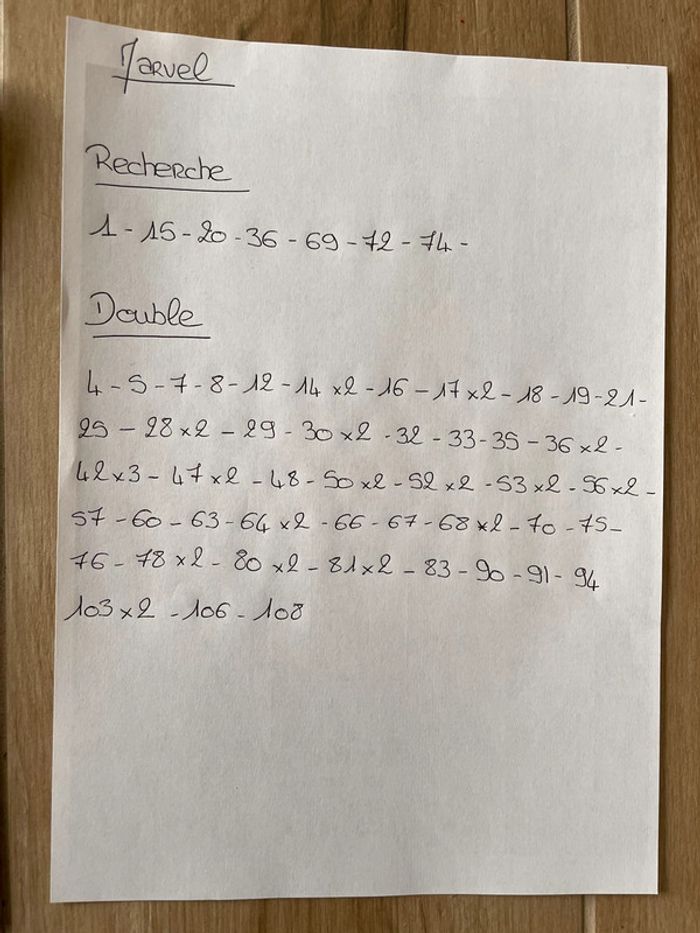 Marvel
Recherche
1 - 15 - 20 - 36 - 69 - 72 - 74 -
Double
4 - 5 - 7 - 8 - 12 - 14 x2 - 16 - 17 x2 - 18 - 19 - 21 -
25 - 28 x2 - 29 - 30 x2 - 32 - 33 - 35 - 36 x2 -
42 x3 - 47 x2 - 48 - 50 x2 - 52 x2 - 53 x2 - 56 x2 -
57 - 60 - 63 - 64 x2 - 66 - 67 - 68 x2 - 70 - 75 -
76 - 78 x2 - 80 x2 - 81 x2 - 83 - 90 - 91 - 94
103 x2 - 106 - 108